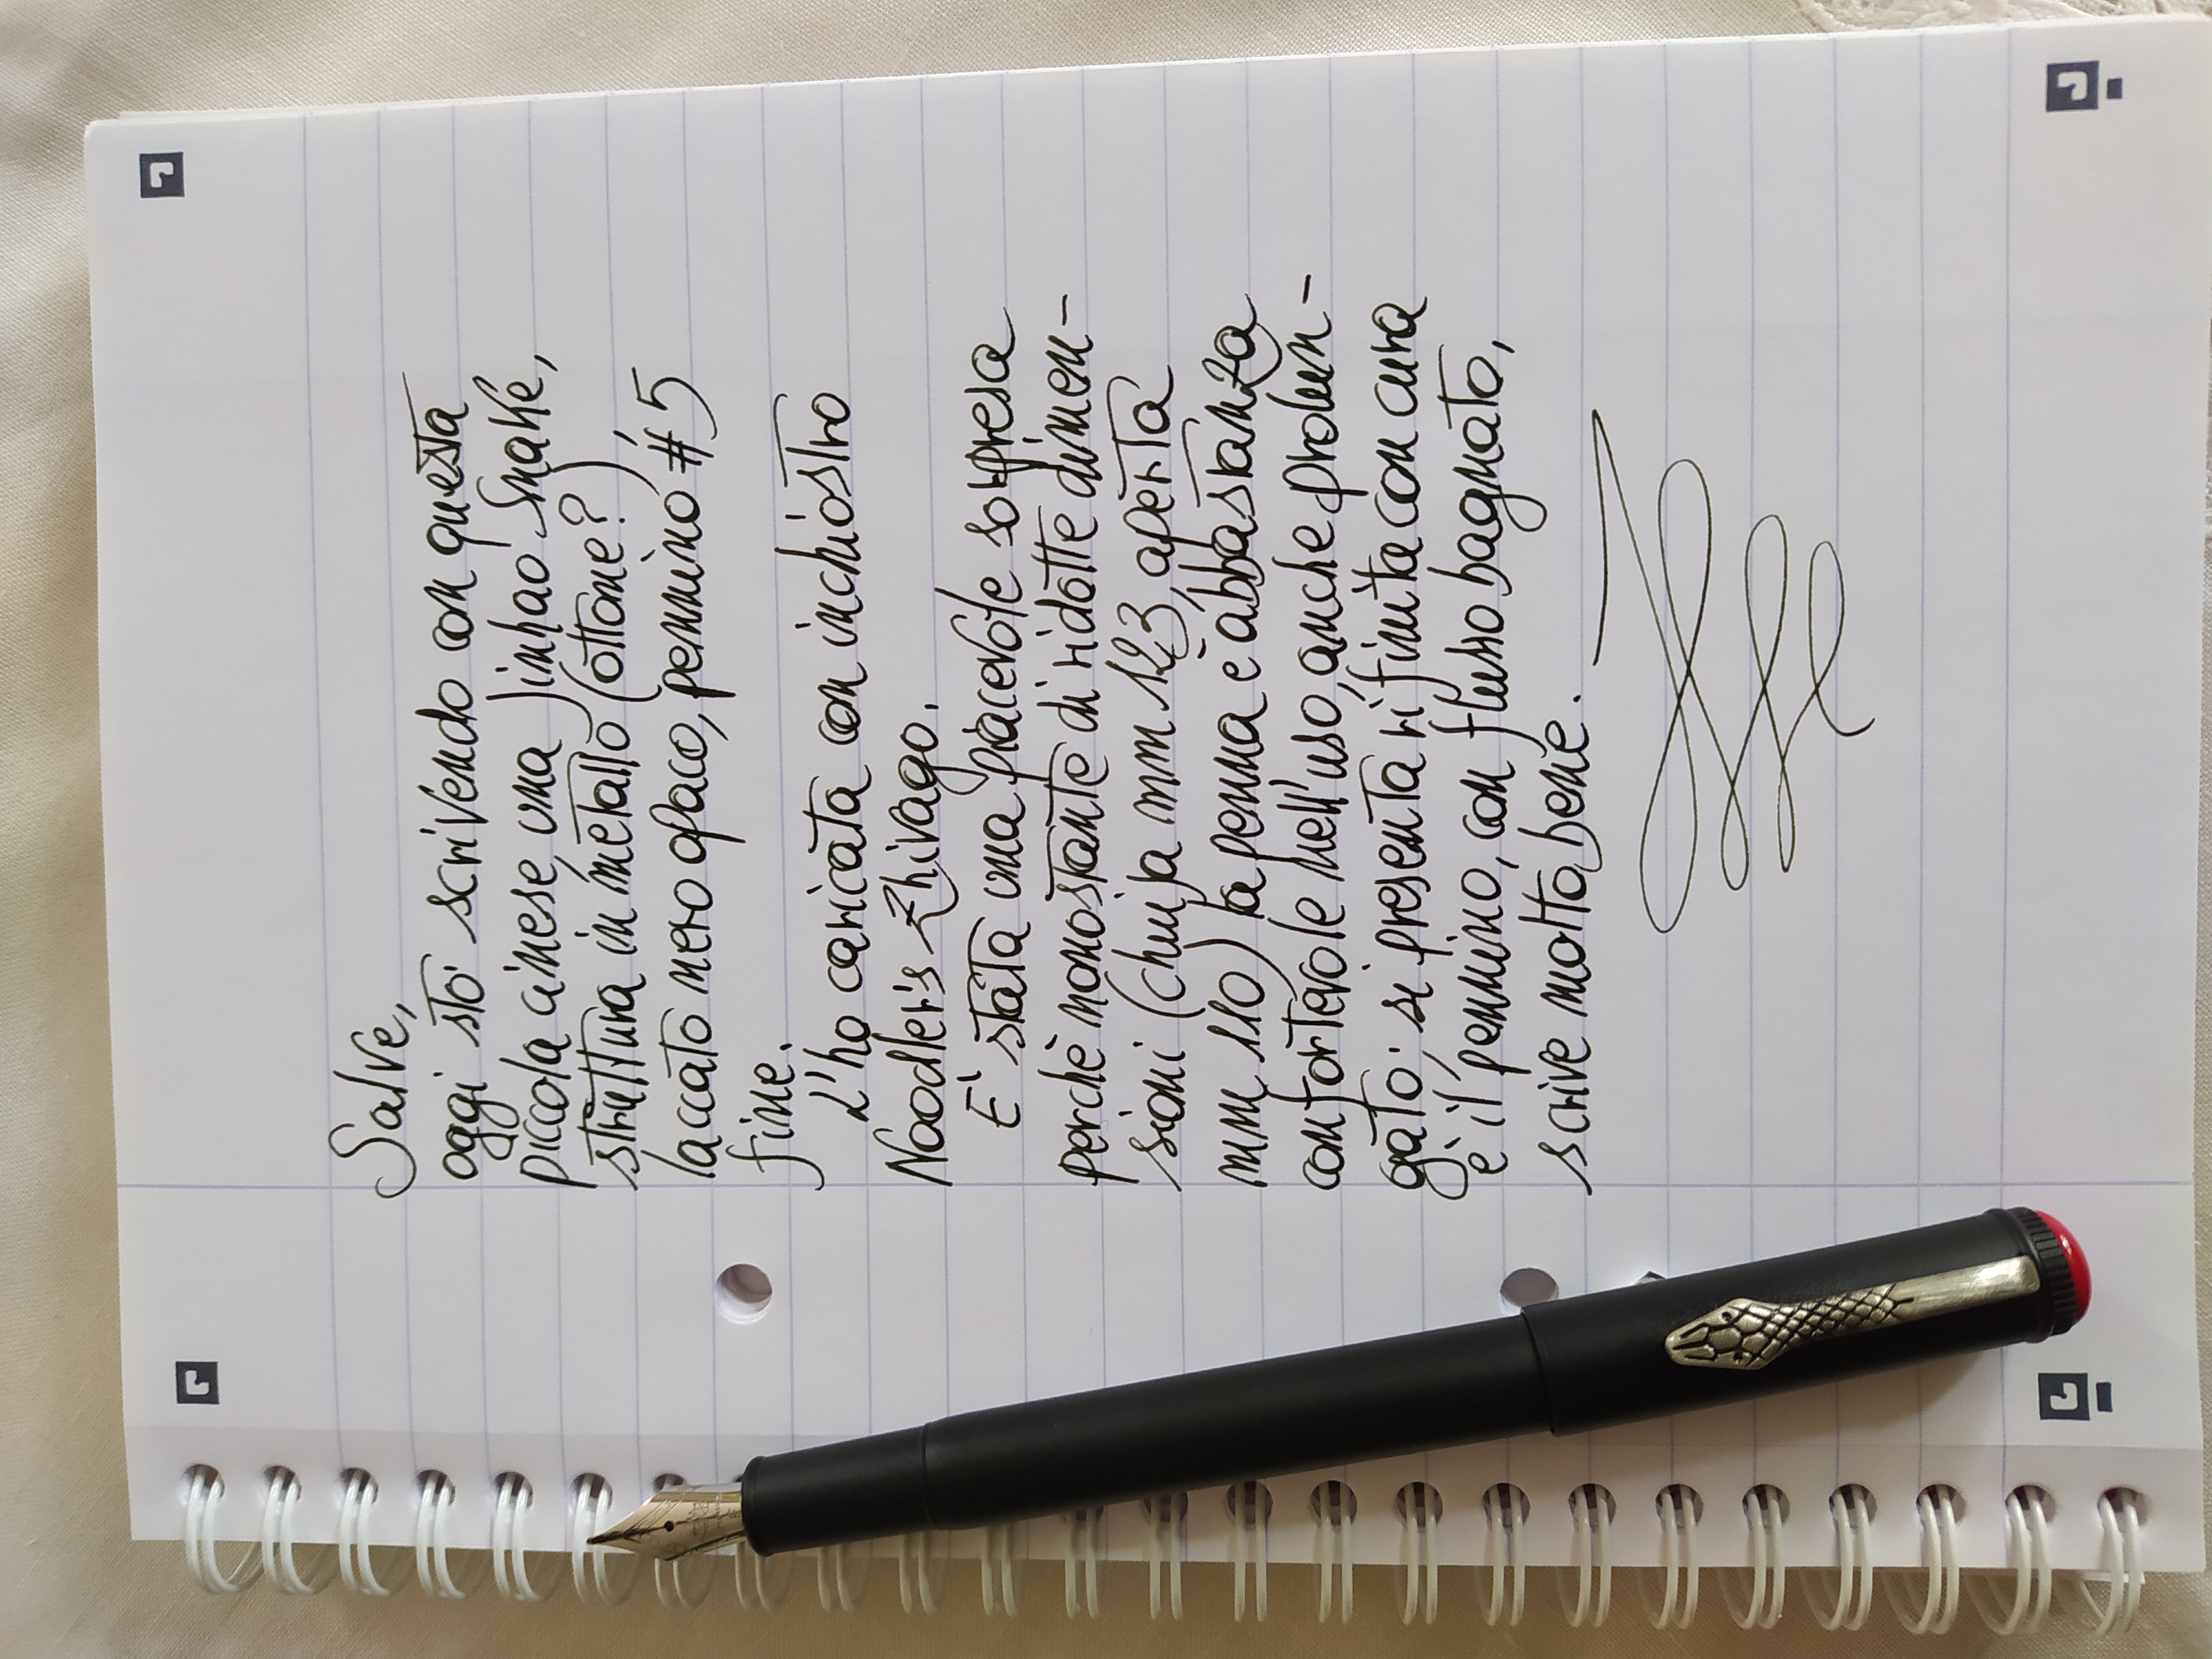 Salve,
oggi sto' scrivendo con questa
piccola cinese una Jinhao Snake,
struttura in metallo (ottone?)
laccato nero opaco, pennino #5
fine.
L'ho caricata con inchiostro
Noodler's Zhivago.
E' stata una piacevole sorpresa
perchè nonostante di ridotte dimen-
sioni (chiusa mm 123, aperta
mm 110) la penna è abbastanza
confortevole nell'uso, anche prolun-
gato: si presenta rifinita con cura
e il pennino, con flusso bagnato,
scrive molto bene.